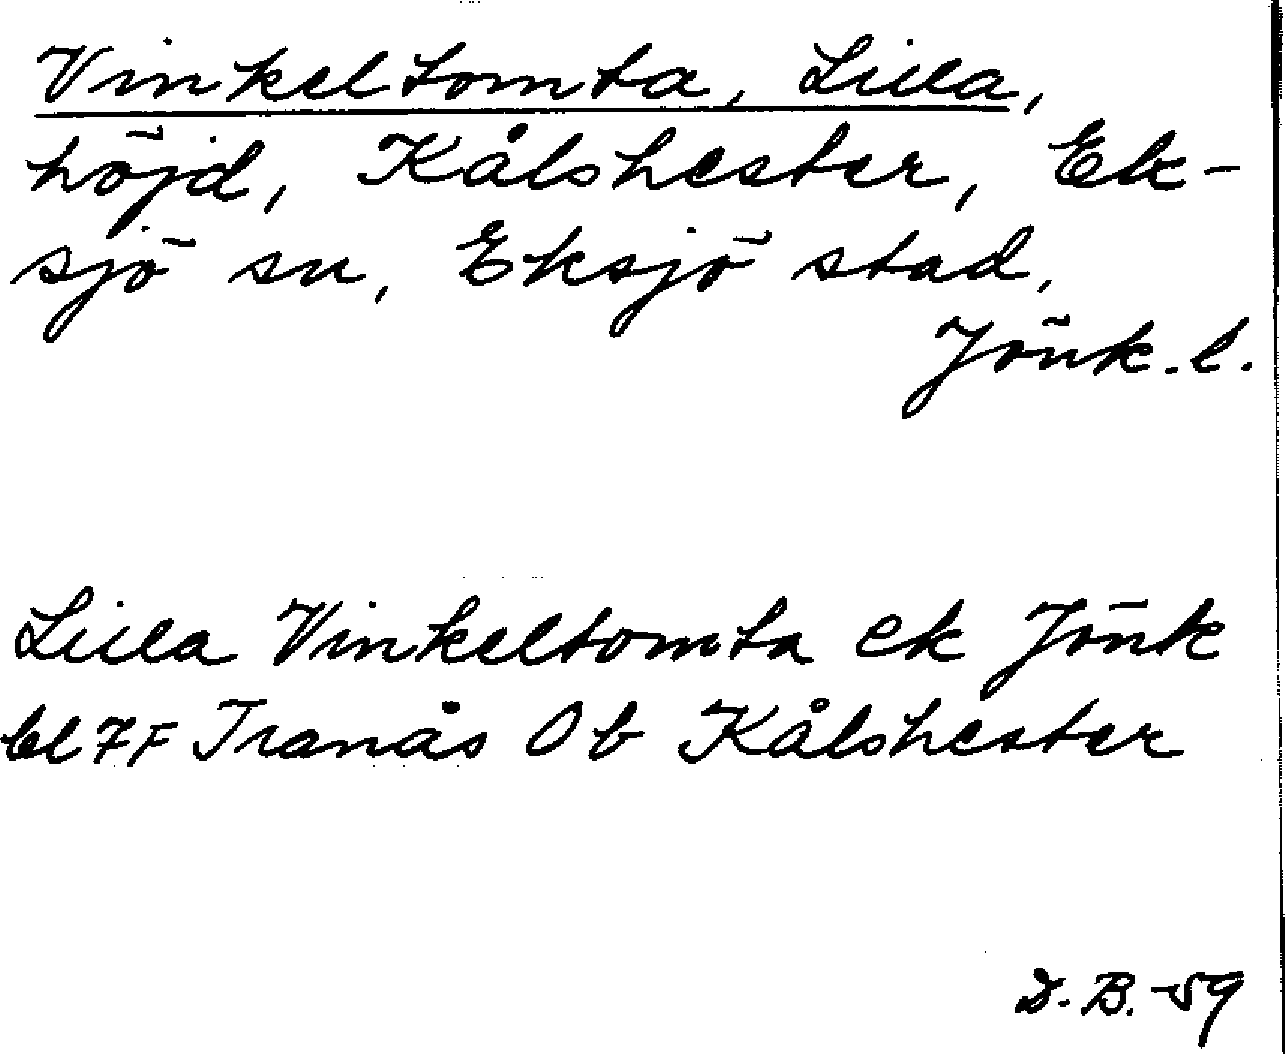 Vinkeltomta, Lilla,
höjd, Kålshester, Ek-
sjö sn, Eksjö stad,
Jönk. l.
Lilla Vinkeltomta ek Jönk
bl 7F Tranås Ob Kålshester
D. B. -59